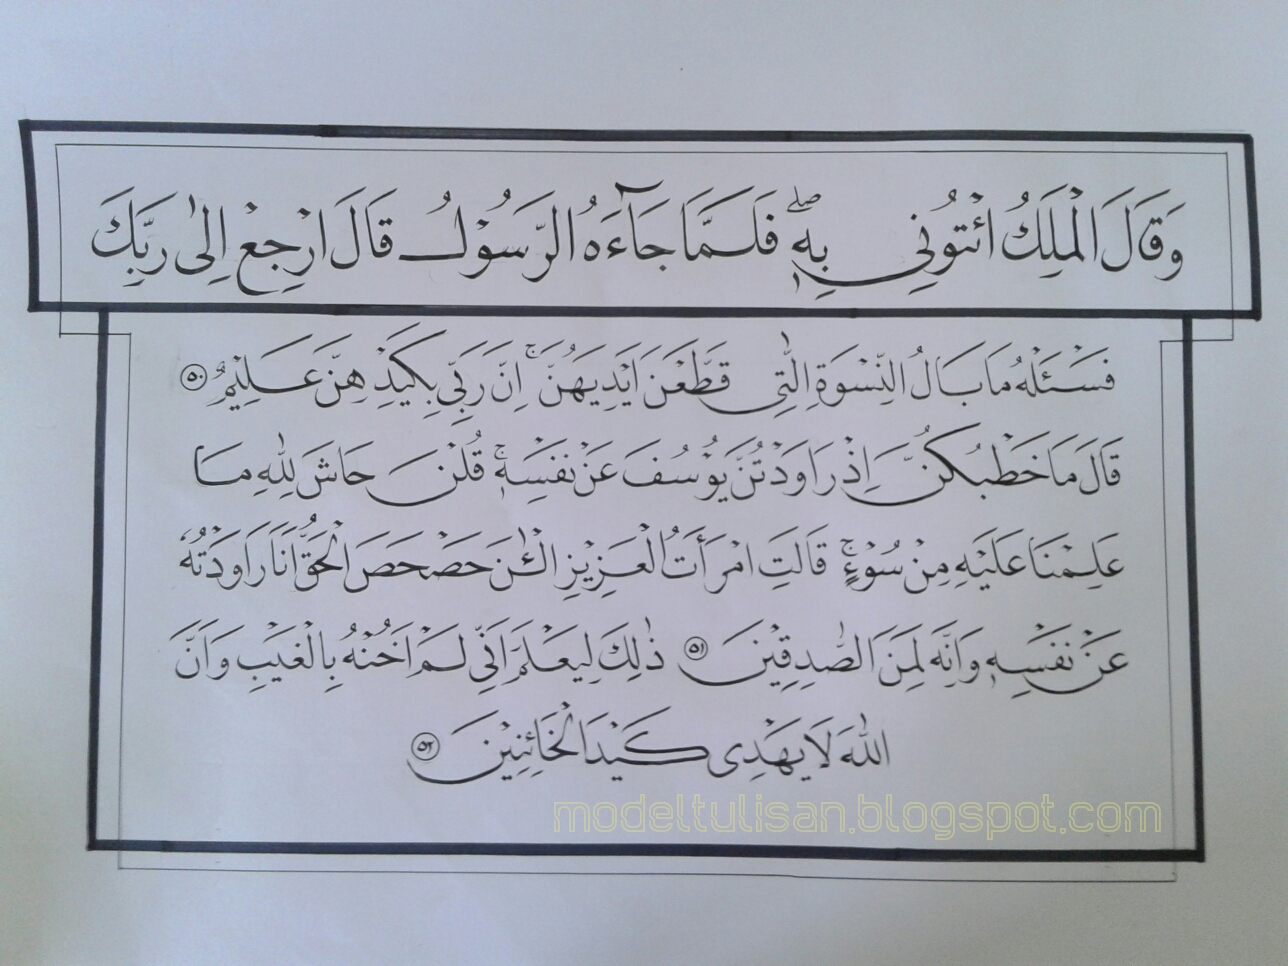 وَقَالَ الْمَلِكُ ائْتُونِي بِهٖۖ فَلَمَّا جَآءَهُ الرَّسُوْلُ قَالَ ارْجِعْ اِلٰى رَبِّكَ
فَسْـَٔلْهُ مَا بَالُ النِّسْوَةِ الّٰتِي قَطَّعْنَ اَيْدِيَهُنَّۚ اِنَّ رَبِّيْ بِكَيْدِهِنَّ عَلِيْمٌ ٥٠
قَالَ مَا خَطْبُكُنَّ اِذْ رَاوَدْتُنَّ يُوْسُفَ عَنْ نَفْسِهٖۚ قُلْنَ حَاشَ لِلّٰهِ مَا
عَلِمْنَا عَلَيْهِ مِنْ سُوْءٍۚ قَالَتِ امْرَأَتُ الْعَزِيْزِ الْـٰٔنَ حَصْحَصَ الْحَقُّ اَنَا رَاوَدْتُهٗ
عَنْ نَفْسِهٖ وَاِنَّهٗ لَمِنَ الصّٰدِقِيْنَ ٥١ ذٰلِكَ لِيَعْلَمَ اَنِّيْ لَمْ اَخُنْهُ بِالْغَيْبِ وَاَنَّ
اللّٰهَ لَا يَهْدِى كَيْدَ الْخَائِنِيْنَ ٥٢
modeltulisan.blogspot.com